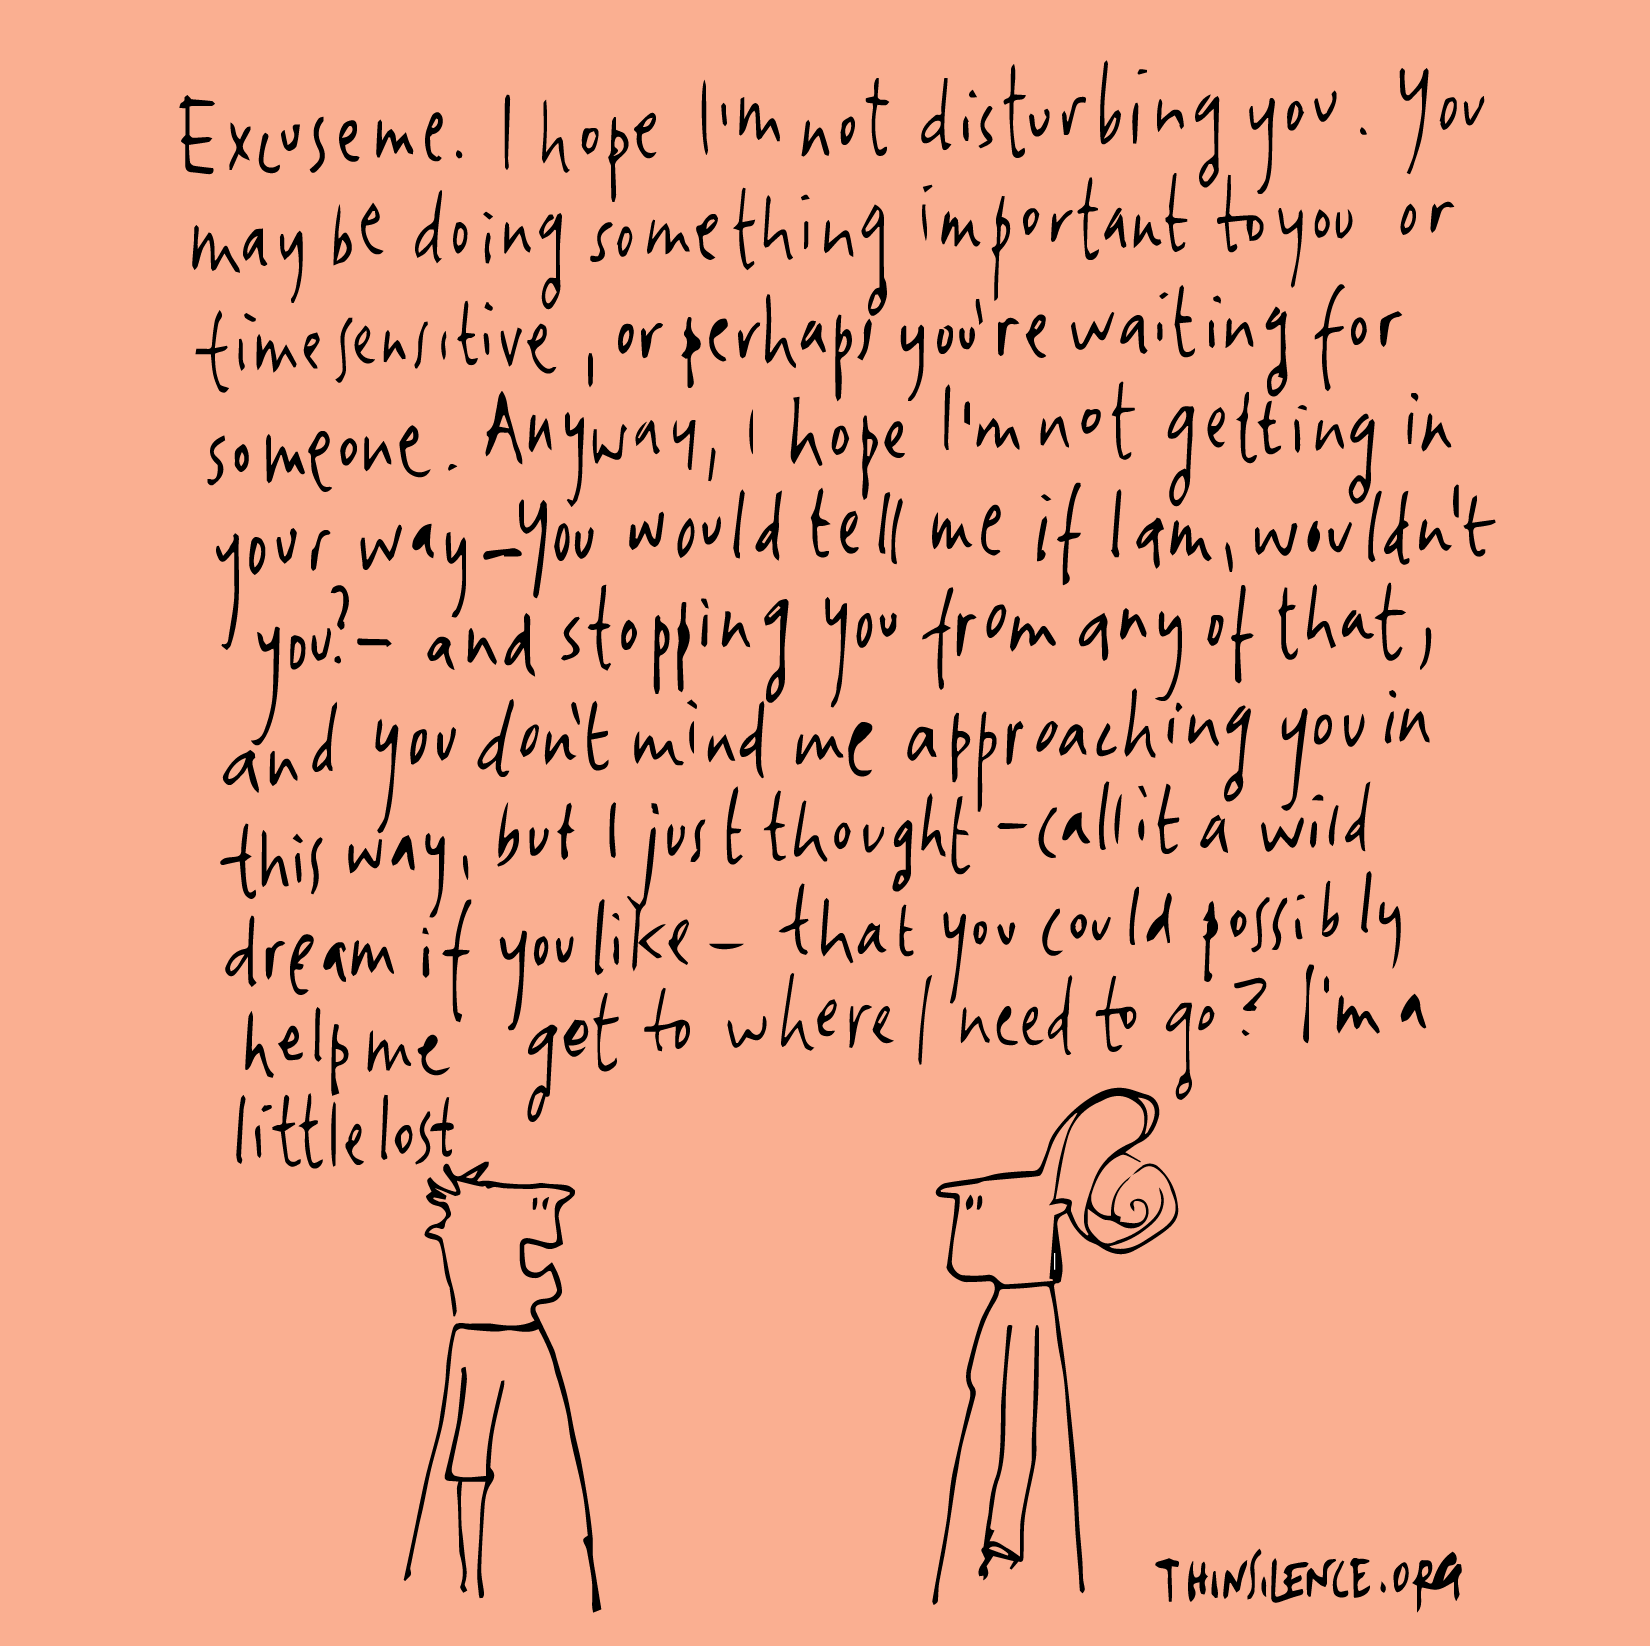 Excuse me. I hope I'm not disturbing you. You
may be doing something important to you or
time sensitive, or perhaps you're waiting for
someone. Anyway, I hope I'm not getting in
your way – You would tell me if I am, wouldn't
you? – and stopping you from any of that,
and you don't mind me approaching you in
this way, but I just thought – call it a wild
dream if you like – that you could possibly
help me get to where I need to go? I'm a
little lost
THINSILENCE.ORG